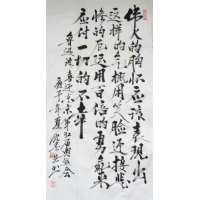 伟人的胸怀应该表现出
这样的气概用笑脸迎接悲
惨的厄运用百倍的勇气来
应付一切的不幸
鲁迅
年夏